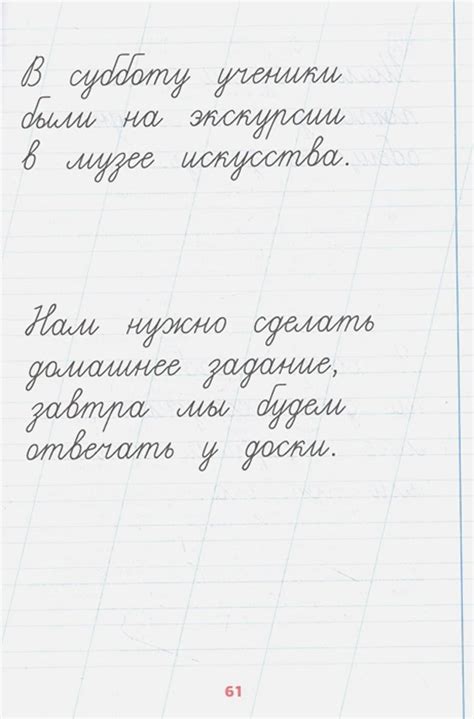 В субботу ученики
были на экскурсии
в музее искусства.
Нам нужно сделать
домашнее задание,
завтра мы будем
отвечать у доски.
61